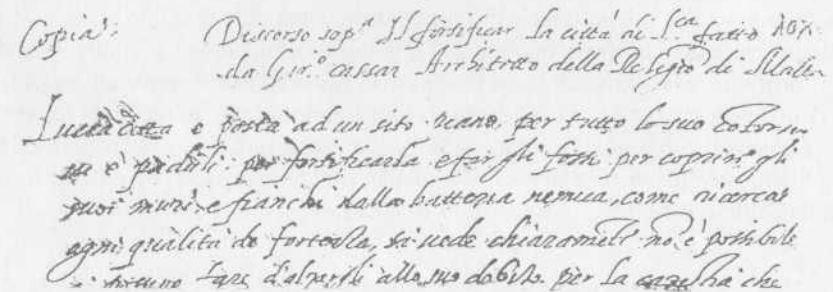 Copia:
Discorso sop.ª Il fortificar la città di L.ca fatto
da Gir.º cassar Architetto della Religiõ di Malta
Lucca città e posta ad un sito piano, per tutto lo suo contorno
e paduli per fortificarla e far gli fossi per coprire gli
suoi muri e fianchi dalla batteria nemica, come ricerca
ogni qualità de fortezza, si vede chiaramẽte nõ è possibile
fare allo suo debito per la che